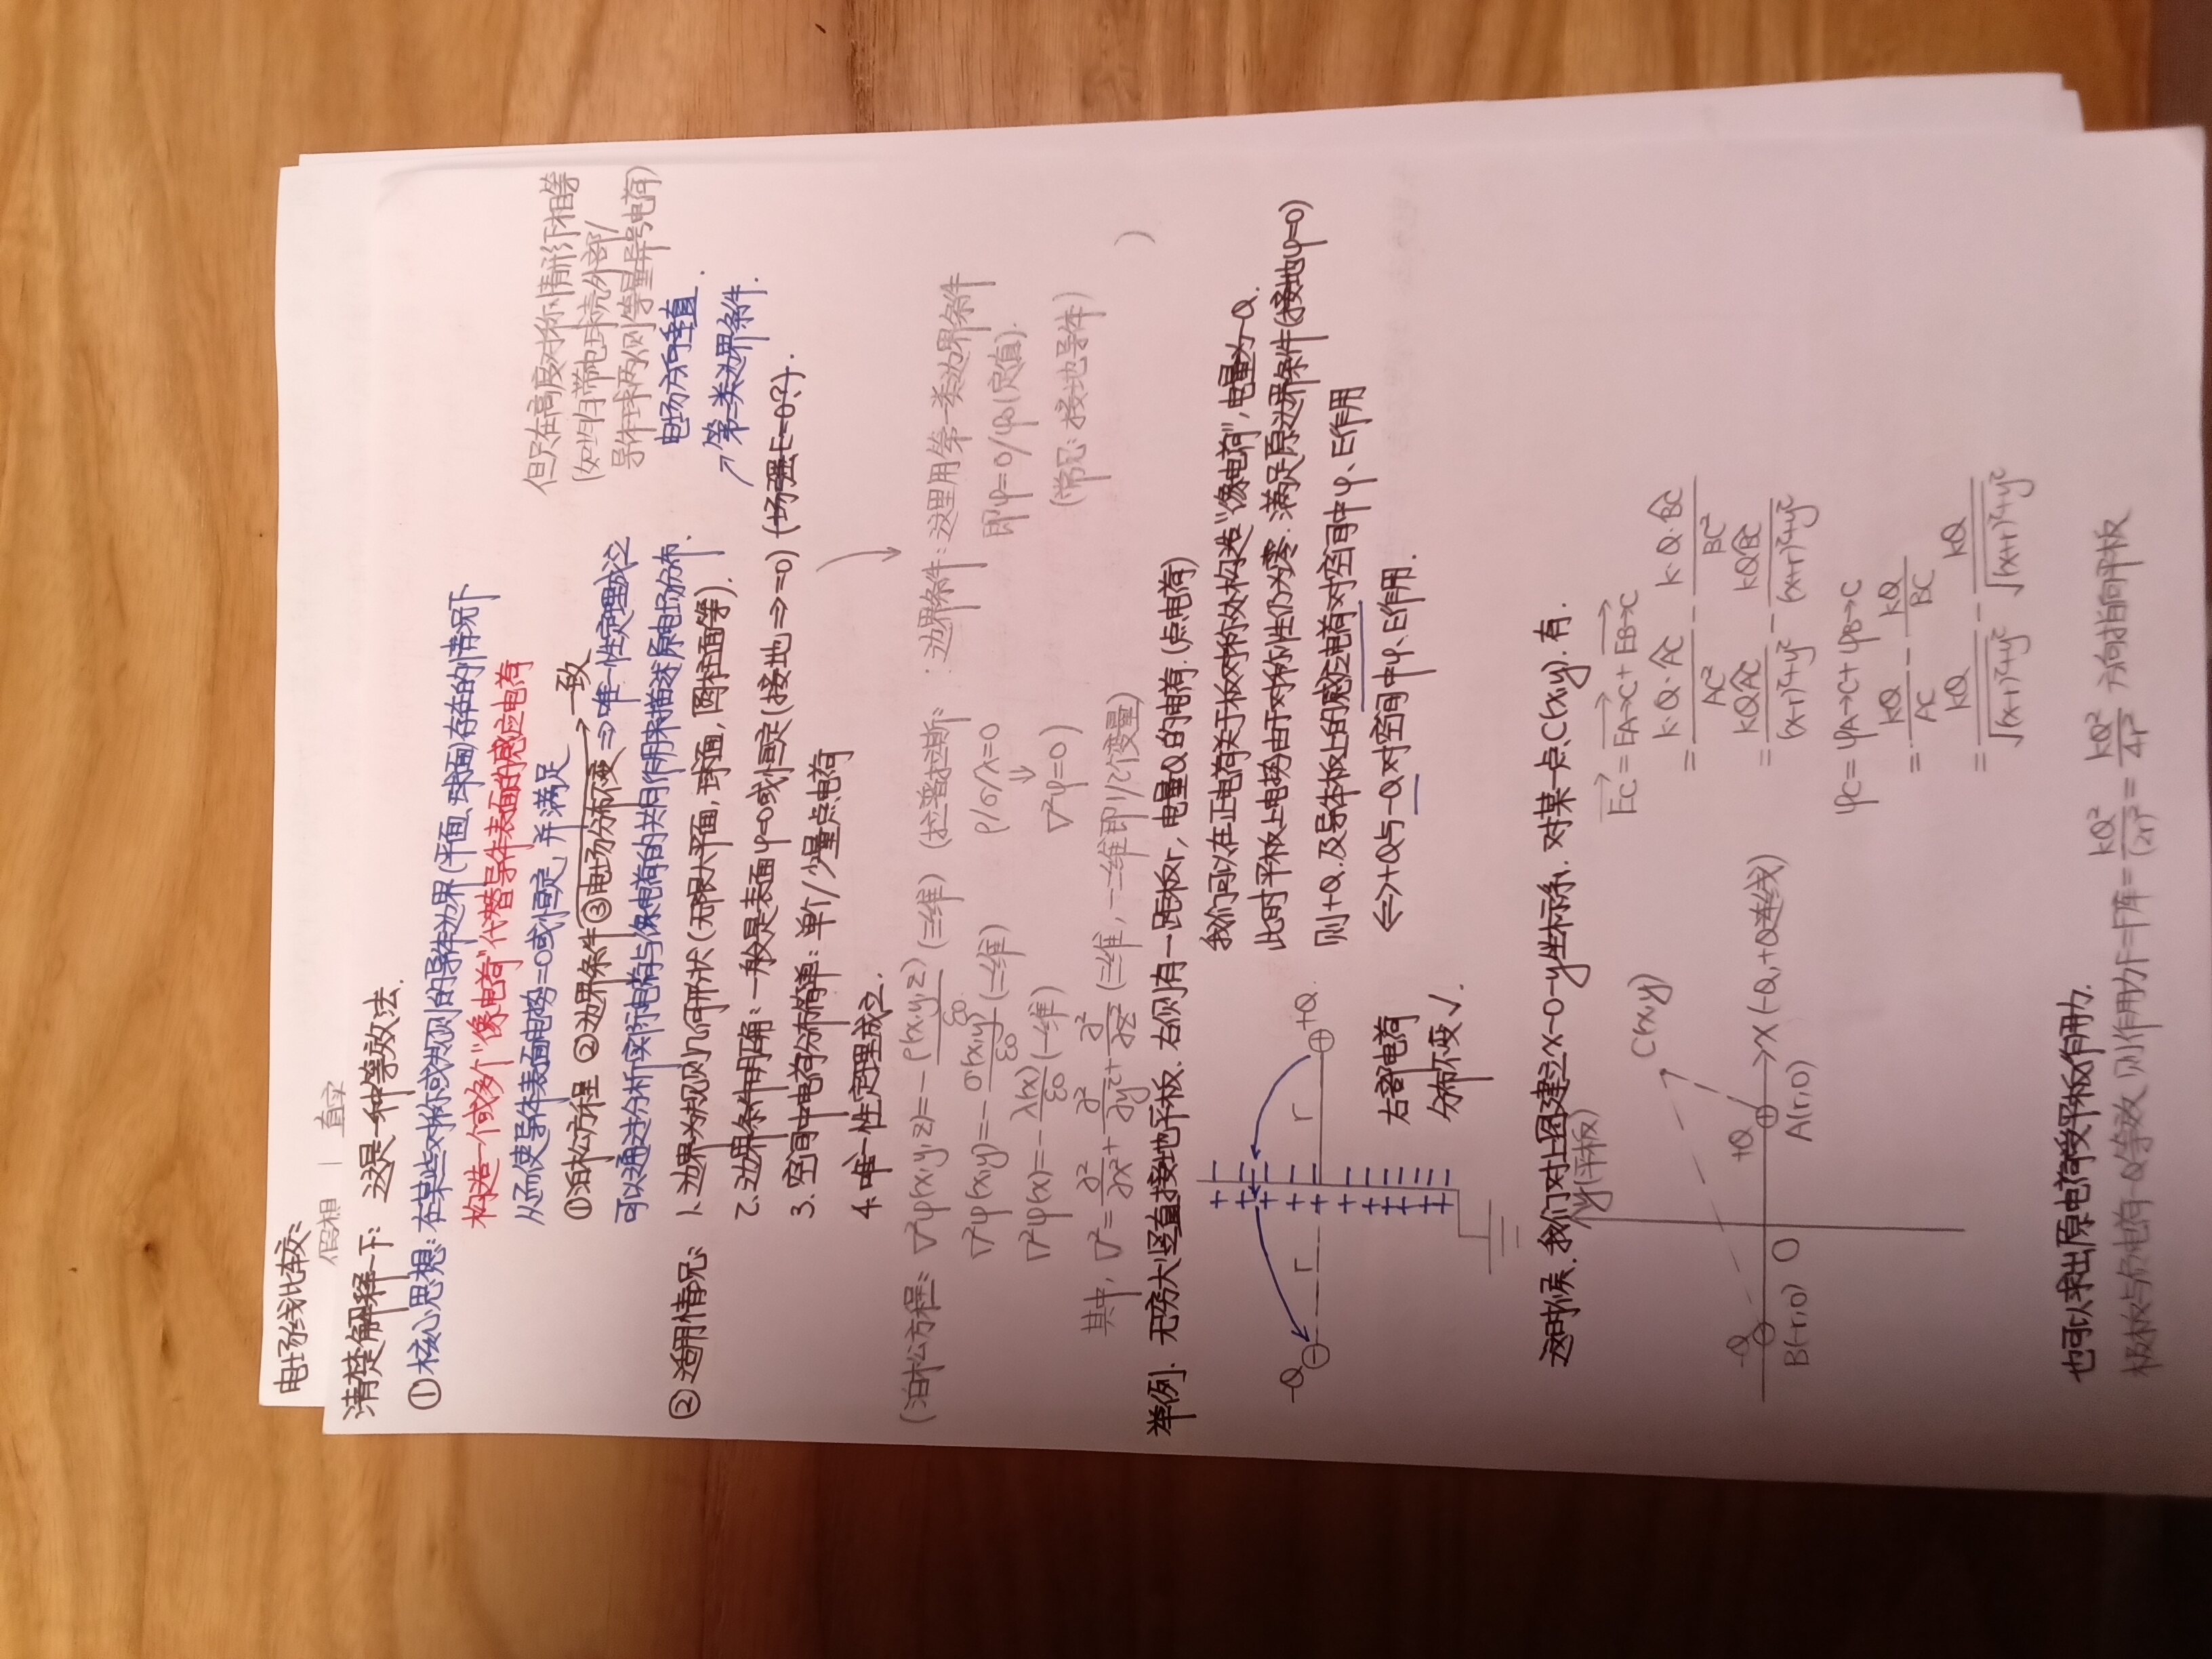 电场线比较:
假想 | 真实
清楚解释一下: 这是一种等效法.
①核心思想: 在某些对称或规则的导体边界(平面、球面)存在的情况下
构造一个或多个"像电荷"代替导体表面的感应电荷
从而使导体表面电势=0或恒定, 并满足
①泊松方程 ②边界条件 ③电场分布不变 → 一致 ⇒ 唯一性定理成立
可以通过分析实际电荷与像电荷的共同作用来描述原电场分布.
但只在高度对称情形下相等
(如均匀带电球壳外部/
导体球两侧等量异号电荷)
电场方向垂直.
↗第二类边界条件.
②适用情况: 1、边界为规则几何形状(无限大平面, 球面, 圆柱面等).
2、边界条件明确: 一般是表面φ=0或恒定(接地⇒=0) (场强E=0?).
3. 空间中电荷分布简单: 单个/少量点电荷
4. 唯一性定理成立.
(泊松方程: ∇²φ(x,y,z)=-ρ(x,y,z)/ε0 (三维) (拉普拉斯: : 边界条件: 这里用第一类边界条件
∇²φ(x,y)=-σ(x,y)/ε0 (二维) ρ/σ/λ=0 即φ=0/φ0(定值).
∇²φ(x)=-λ(x)/ε0 (一维) ⇓ ∇²φ=0) (常见: 接地导体)
其中, ∇²=∂²/∂x²+∂²/∂y²+∂²/∂z² (三维, 一二维即1/2个变量) )
举例. 无穷大竖直接地平板、右侧有一距板r, 电量Q的电荷.(点电荷)
我们可以在正电荷关于板对称处构造"像电荷", 电量为-Q.
此时平板上电势由于对称性仍为零. 满足原边界条件(接地φ=0)
则+Q 及导体板上的感应电荷对空间中φ、E作用
⇔+Q与-Q对空间中φ、E作用.
-Q
r
r
+Q
右部电荷
分布不变✓.
这时候. 我们对上图建立x-O-y坐标系、对某一点C(x,y). 有.
y(平板)
C(x,y)
-Q
+Q
x(-Q,+Q连线)
B(-r,0)
O
A(r,0)
EC = EA→C + EB→C
= k·Q·AC/AC² - k·Q·BC/BC²
= kQAC/(x-r)²+y² - kQBC/(x+r)²+y²
φC= φA→C+ φB→C
= kQ/AC - kQ/BC
= kQ/√(x-r)²+y² - kQ/√(x+r)²+y²
也可以求出原电荷受平板作用力.
极板与负电荷-Q等效, 则作用力F=F库= kQ²/(2r)² = kQ²/4r² 方向指向平板